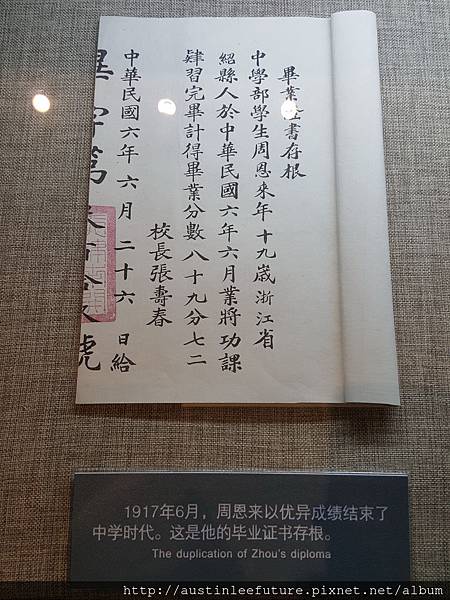 畢業證書存根
中學部學生周恩來年十九歲浙江省
紹縣人於中華民國六年六月業將功課
肄習完畢計得畢業分數八十九分七二
校長張壽春
中華民國六年六月二十六日給
畢字第
號
1917年6月，周恩来以优异成绩结束了
中学时代。这是他的毕业证书存根。
The duplication of Zhou's diploma
http://austinleefuture.pixnet.net/album